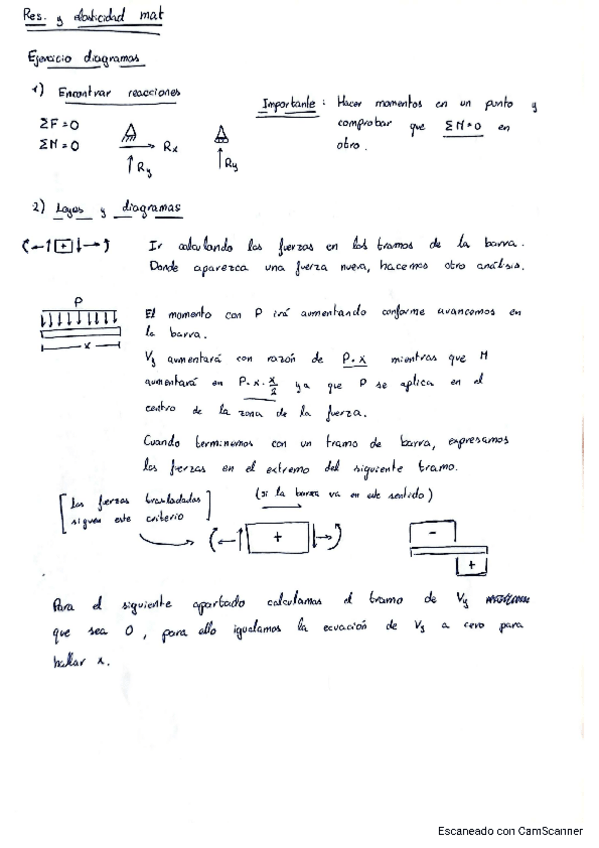 Res. y elasticidad mat
Ejercicio diagramas
1) Encontrar reacciones
ΣF=0
ΣM=0
Rx
Ry
Ry
Importante: Hacer momentos en un punto y
comprobar que ΣM=0 en
otro.
2) Leyes y diagramas
+
Ir calculando las fuerzas en los tramos de la barra.
Donde aparezca una fuerza nueva, hacemos otro análisis.
P
x
El momento con P irá aumentando conforme avancemos en
la barra.
Vy aumentará con razón de P·x mientras que M
aumentará en P·x·x/2 ya que P se aplica en el
centro de la zona de la fuerza.
Cuando terminemos con un tramo de barra, expresamos
las fuerzas en el extremo del siguiente tramo.
[Las fuerzas trasladadas
siguen este criterio]
(si la barra va en este sentido)
+
-
+
Para el siguiente apartado calculamos el tramo de Vy
que sea 0, para ello igualamos la ecuación de Vy a cero para
hallar x.
Escaneado con CamScanner